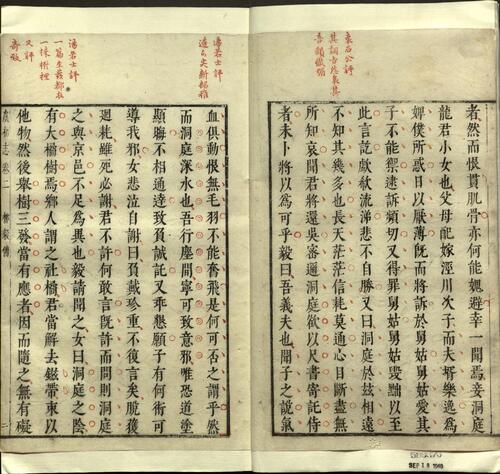 袁石公評
者然而恨貫肌骨亦何能媿避幸一聞焉妾洞庭
龍君小女也父母配嫁涇川次子而夫壻樂逸為
婢僕所惑日以厭薄既而將訴於舅姑舅姑愛其
子不能禦迨訴頻切又得罪舅姑舅姑毀黜以至
此言訖歔欷流涕悲不自勝又曰洞庭於茲相遠
不知其幾多也長天茫茫信耗莫通心目斷盡無
所知哀聞君將還吳密邇洞庭欲以尺書寄託侍
者未卜將以為可乎毅曰吾義夫也聞子之說氣
湯若士評
湯若士評
一篇生發都在
一株樹裡
又評
血俱動恨無毛羽不能奮飛是何可否之謂乎然
而洞庭深水也吾行塵間寧可致意邪唯恐道塗
顯晦不相通達致負誠託又乖懇願子有何術可
導我邪女悲泣自謝曰負載珍重不復言矣脫獲
迴耗雖死必謝君不許何敢言既許而問則洞庭
之與京邑不足為異也毅請聞之女曰洞庭之陰
有大橘樹焉鄉人謂之社橘君當解去茲帶束以
他物然後舉樹三發當有應者因而隨之無有礙
虞初志 卷二 柳毅傳 二
SEP 18